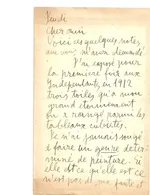 Jeudi
Cher ami
Voici ces quelques notes
que vous m'avez demandé
J'ai exposé pour
la première fois aux
Indépendants en 1912
trois toiles qui à mon
grand étonnement
on a rangé parmi les
tableaux cubistes.
Je n'ai jamais songé
à faire un genre déter-
miné de peinture. Si
elle est ce qu'elle est ce
n'est pas de ma faute et